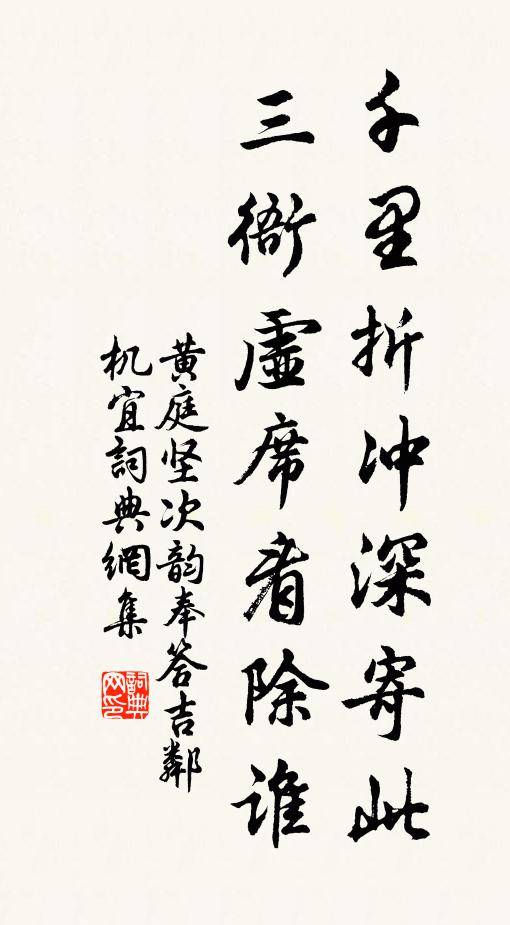 千里折冲深寄此
三衙虚席看除谁
黄庭坚次韵奉答吉鄰
机宜詞典網集
詞典网印